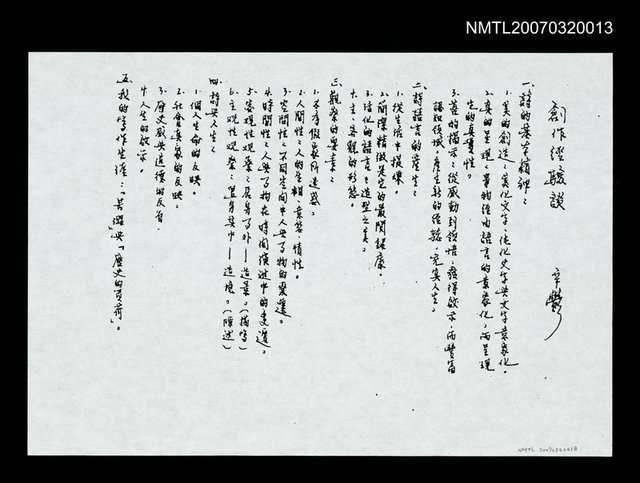 NMTL20070320013
創作經驗談
辛鬱
一、詩的基本精神：
1.美的創造：美化文字、淨化文字與文字意象化。
2.真的呈現：事物經由語言的意象化，而呈現
它的真實性。
3.善的揭示：從感動到領悟，獲得啟示，而豐富
認知領域，產生新的經驗，充實人生。
二、詩語言的產生：
1.從生活中提煉。
2.簡潔精微是它的最關鍵處。
3.活化的語言之造型之美。
4.主、客觀的形態。
三、觀察的要素：
1.不為假象所迷惑。
2.人間性：人的生相、意態、情性。
3.空間性：不同空間中人與事物的變遷。
4.時間性：人與事物在時間演進中的變遷。
5.客觀性觀察：居身事外——造景。（描寫）
6.主觀性觀察：置身其中——造境。（陳述）
四、詩與人生：
1.個人生命的反映。
2.社會真象的反映。
3.歷史感與道德的反省。
4.人生的啟示。
五、我的寫作生涯：「苦澀」與「歷史的負荷」。
NMTL 20070320013